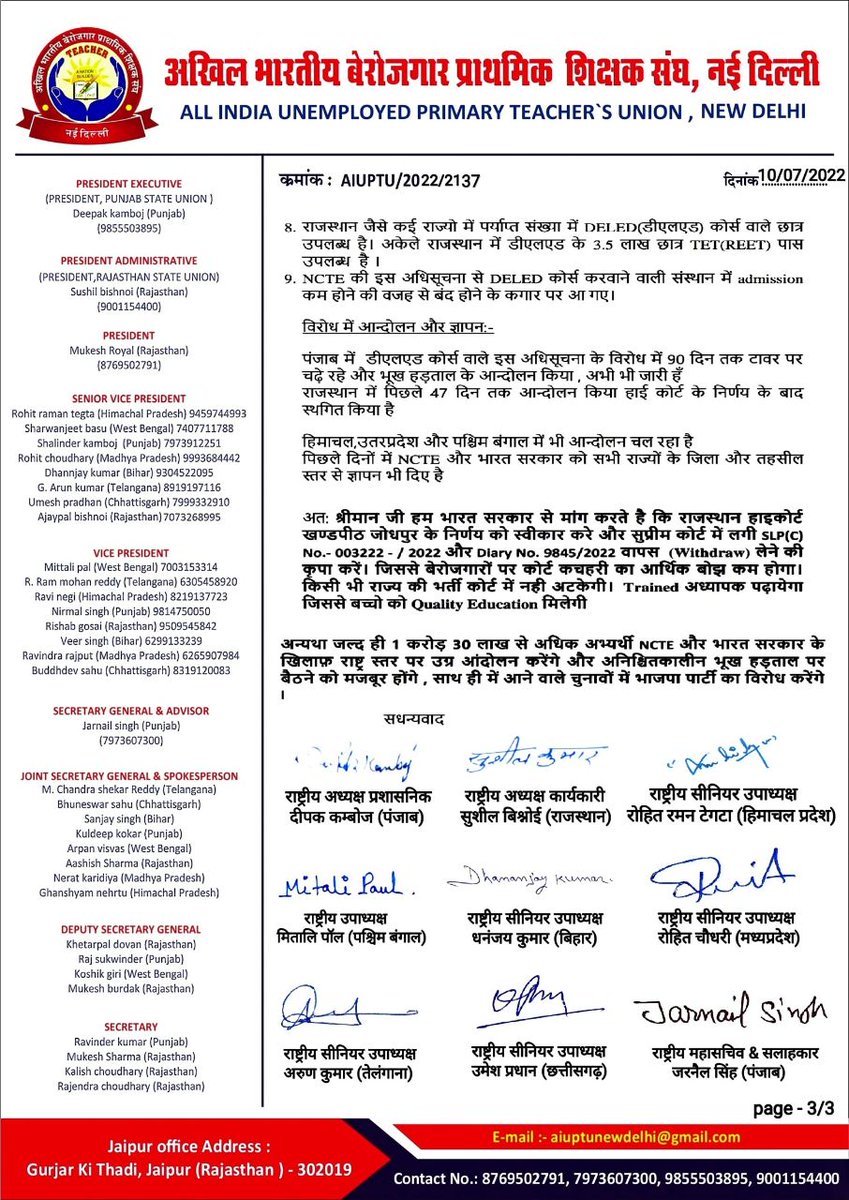 अखिल भारतीय बेरोजगार प्राथमिक शिक्षक संघ
TEACHER
नई दिल्ली
अखिल भारतीय बेरोजगार प्राथमिक शिक्षक संघ, नई दिल्ली
ALL INDIA UNEMPLOYED PRIMARY TEACHER`S UNION , NEW DELHI
PRESIDENT EXECUTIVE
(PRESIDENT, PUNJAB STATE UNION )
Deepak kamboj (Punjab)
(9855503895)
PRESIDENT ADMINISTRATIVE
(PRESIDENT,RAJASTHAN STATE UNION)
Sushil bishnoi (Rajasthan)
(9001154400)
PRESIDENT
Mukesh Royal (Rajasthan)
(8769502791)
SENIOR VICE PRESIDENT
Rohit raman tegta (Himachal Pradesh) 9459744993
Sharwanjeet basu (West Bengal) 7407711788
Shalinder kamboj (Punjab) 7973912251
Rohit choudhary (Madhya Pradesh) 9993684442
Dhannjay kumar (Bihar) 9304522095
G. Arun kumar (Telangana) 8919197116
Umesh pradhan (Chhattisgarh) 7999332910
Ajaypal bishnoi (Rajasthan) 7073268995
VICE PRESIDENT
Mittali pal (West Bengal) 7003153314
R. Ram mohan reddy (Telangana) 6305458920
Ravi negi (Himachal Pradesh) 8219137723
Nirmal singh (Punjab) 9814750050
Rishab gosai (Rajasthan) 9509545842
Veer singh (Bihar) 6299133239
Ravindra rajput (Madhya Pradesh) 6265907984
Buddhdev sahu (Chhattisgarh) 8319120083
SECRETARY GENERAL & ADVISOR
Jarnail singh (Punjab)
(7973607300)
JOINT SECRETARY GENERAL & SPOKESPERSON
M. Chandra shekar Reddy (Telangana)
Bhuneswar sahu (Chhattisgarh)
Sanjay singh (Bihar)
Kuldeep kokar (Punjab)
Arpan visvas (West Bengal)
Aashish Sharma (Rajasthan)
Nerat karidiya (Madhya Pradesh)
Ghanshyam nehrtu (Himachal Pradesh)
DEPUTY SECRETARY GENERAL
Khetarpal dovan (Rajasthan)
Raj sukwinder (Punjab)
Koshik giri (West Bengal)
Mukesh burdak (Rajasthan)
SECRETARY
Ravinder kumar (Punjab)
Mukesh Sharma (Rajasthan)
Kalish choudhary (Rajasthan)
Rajendra choudhary (Rajasthan)
क्रमांक : AIUPTU/2022/2137
दिनांक 10/07/2022
8. राजस्थान जैसे कई राज्यो में पर्याप्त संख्या में DELED(डीएलएड) कोर्स वाले छात्र
उपलब्ध है। अकेले राजस्थान में डीएलएड के 3.5 लाख छात्र TET(REET) पास
उपलब्ध है ।
9. NCTE की इस अधिसूचना से DELED कोर्स करवाने वाली संस्थान में admission
कम होने की वजह से बंद होने के कगार पर आ गए।
विरोध में आन्दोलन और ज्ञापन:-
पंजाब में डीएलएड कोर्स वाले इस अधिसूचना के विरोध में 90 दिन तक टावर पर
चढ़े रहे और भूख हड़ताल के आन्दोलन किया , अभी भी जारी हैं
राजस्थान में पिछले 47 दिन तक आन्दोलन किया हाई कोर्ट के निर्णय के बाद
स्थगित किया है
हिमाचल,उतरप्रदेश और पश्चिम बंगाल में भी आन्दोलन चल रहा है
पिछले दिनों में NCTE और भारत सरकार को सभी राज्यों के जिला और तहसील
स्तर से ज्ञापन भी दिए है
अत: श्रीमान जी हम भारत सरकार से मांग करते है कि राजस्थान हाइकोर्ट
खण्डपीठ जोधपुर के निर्णय को स्वीकार करे और सुप्रीम कोर्ट में लगी SLP(C)
No.- 003222 - / 2022 और Diary No. 9845/2022 वापस (Withdraw) लेने की
कृपा करें। जिससे बेरोजगारों पर कोर्ट कचहरी का आर्थिक बोझ कम होगा।
किसी भी राज्य की भर्ती कोर्ट में नही अटकेगी। Trained अध्यापक पढ़ायेगा
जिससे बच्चो को Quality Education मिलेगी
अन्यथा जल्द ही 1 करोड़ 30 लाख से अधिक अभ्यर्थी NCTE और भारत सरकार के
खिलाफ़ राष्ट्र स्तर पर उग्र आंदोलन करेंगे और अनिश्चितकालीन भूख हड़ताल पर
बैठने को मजबूर होंगे , साथ ही में आने वाले चुनावों में भाजपा पार्टी का विरोध करेंगे
।
सधन्यवाद
Kamboj सुशील कुमार
राष्ट्रीय अध्यक्ष प्रशासनिक राष्ट्रीय अध्यक्ष कार्यकारी राष्ट्रीय सीनियर उपाध्यक्ष
दीपक कम्बोज (पंजाब) सुशील बिश्नोई (राजस्थान) रोहित रमन टेगटा (हिमाचल प्रदेश)
Mitali Paul. Dhananjay kumar.
राष्ट्रीय उपाध्यक्ष राष्ट्रीय सीनियर उपाध्यक्ष राष्ट्रीय सीनियर उपाध्यक्ष
मितालि पॉल (पश्चिम बंगाल) धनंजय कुमार (बिहार) रोहित चौधरी (मध्यप्रदेश)
Jarnail Singh
राष्ट्रीय सीनियर उपाध्यक्ष राष्ट्रीय सीनियर उपाध्यक्ष राष्ट्रीय महासचिव & सलाहकार
अरुण कुमार (तेलंगाना) उमेश प्रधान (छत्तीसगढ़) जरनैल सिंह (पंजाब)
page - 3/3
Jaipur office Address :
Gurjar Ki Thadi, Jaipur (Rajasthan ) - 302019
E-mail :- aiuptunewdelhi@gmail.com
Contact No.: 8769502791, 7973607300, 9855503895, 9001154400